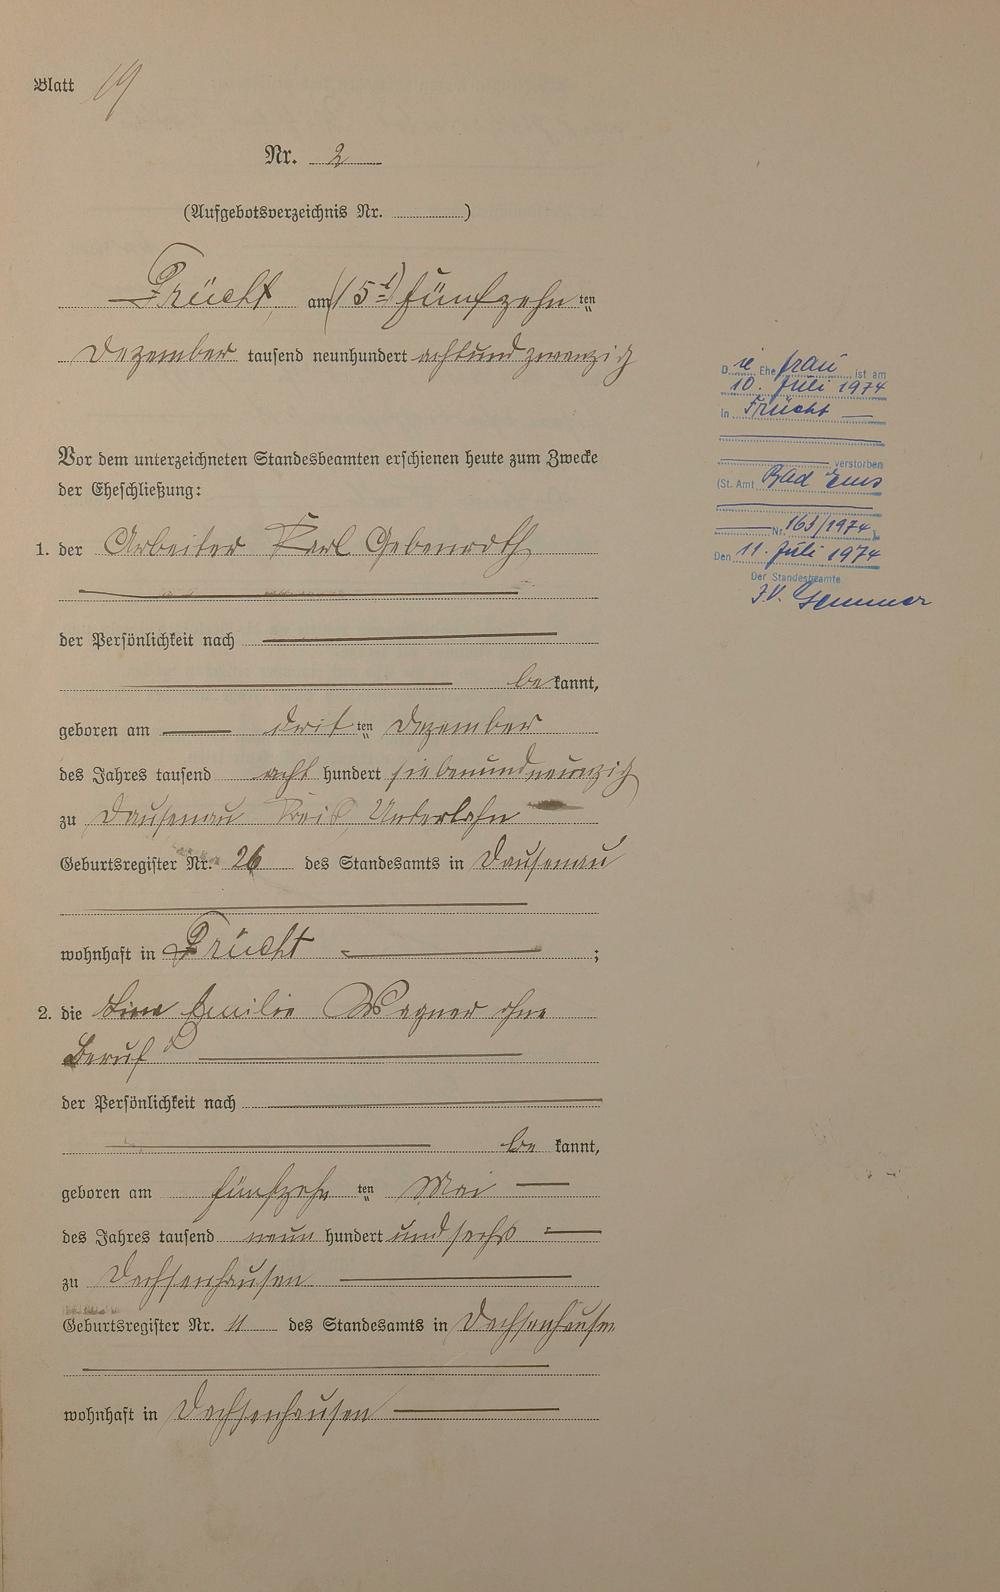 Blatt 19
Nr. 2
(Aufgebotsverzeichnis Nr. )
Frücht, am (15t) fünfzehn ten
Dezember tausend neunhundert achtundzwanzig
Vor dem unterzeichneten Standesbeamten erschienen heute zum Zwecke
der Eheschließung:
1. der Arbeiter Karl Gebenroth
der Persönlichkeit nach
be kannt,
geboren am drit ten Dezember
des Jahres tausend acht hundert siebenundneunzig
zu Dausenau Kreis Unterlahn
Geburtsregister Nr. 26 des Standesamts in Dausenau
wohnhaft in Frücht ;
2. die Emilie Wagner ohne
Beruf
der Persönlichkeit nach
be kannt,
geboren am fünfzehn ten Mai
des Jahres tausend neun hundert und sechs
zu Dachsenhausen
Geburtsregister Nr. 11 des Standesamts in Dachsenhausen
wohnhaft in Dachsenhausen
Die Ehefrau ist am
10. Juli 1974
in Frücht
verstorben
(St. Amt Bad Ems
Nr. 163/1974)
Den 11. Juli 1974
Der Standesbeamte
J.V.